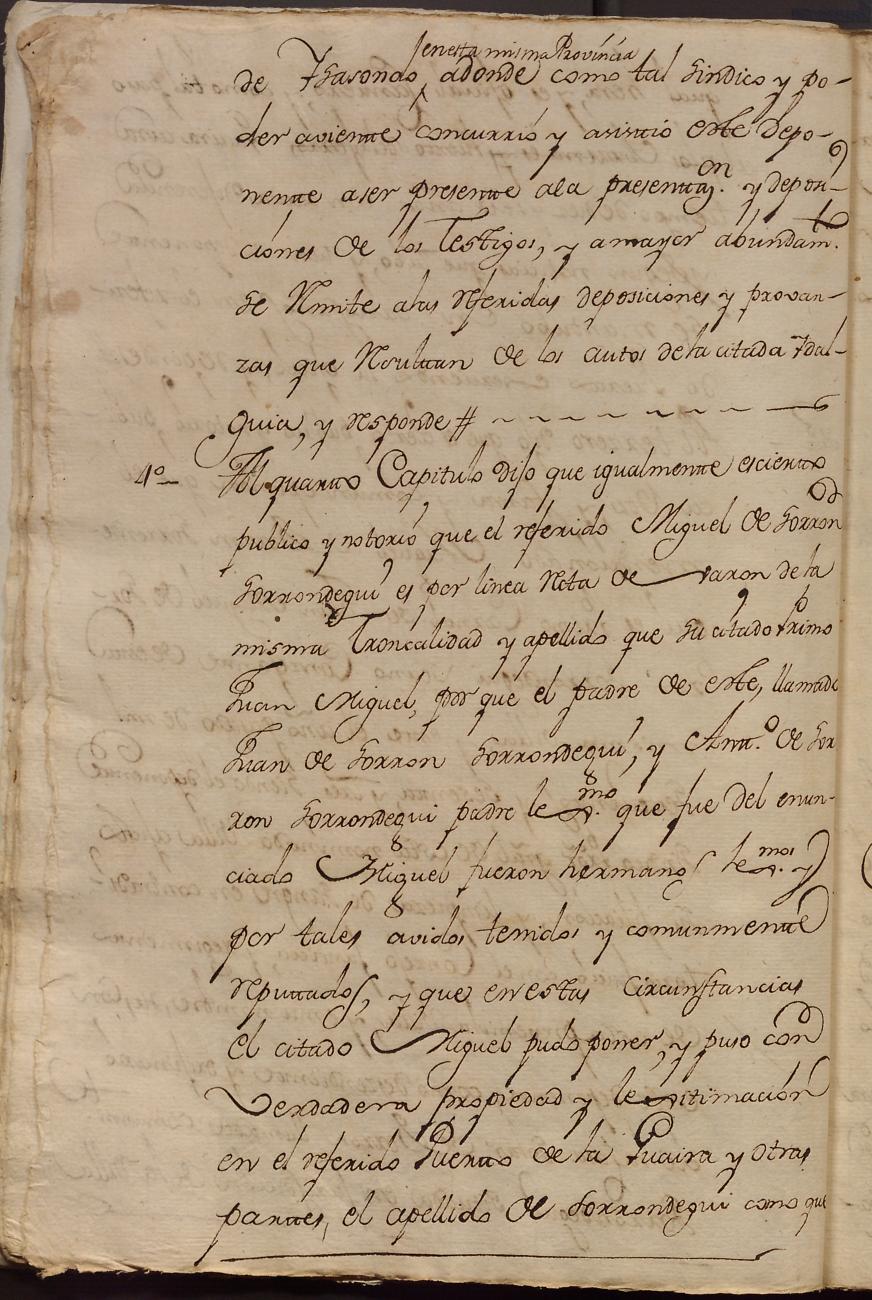 enesta misma Provincia
de Ysasondo, adonde como tal Sindico y po-
der aviente concurrió y asistió este depo-
nente a ser presente ala presentaz.on y deposi-
ciones de los Testigos, y amayor abundam.to
se Remite alas referidas deposiciones y provan-
zas que Resultan de los autos dela citada Ydal-
guia, y responde #
4º Al quarto Capitulo dijo que igualmente escierto
publico y notorio que el referido Miguel de Sorron
Sorrondegui es por linea Recta de varon dela
misma Troncalidad y apellido que su citado Primo
Juan Miguel, por que el padre de este, llamado
Juan de Sorron Sorrondegui, y Antt.º de Sor
ron Sorrondegui padre lex.mo que fue del enun-
ciado Miguel fueron hermanos lex.mos y
por tales avidos tenidos y comunmente
reputtados, y que en estas Circunstancias
el citado Miguel pudo poner, y puso con
Verdadera propiedad y lexitimación
en el referido Puerto de la Guaira y otras
partes, el apellido de Sorrondegui como que